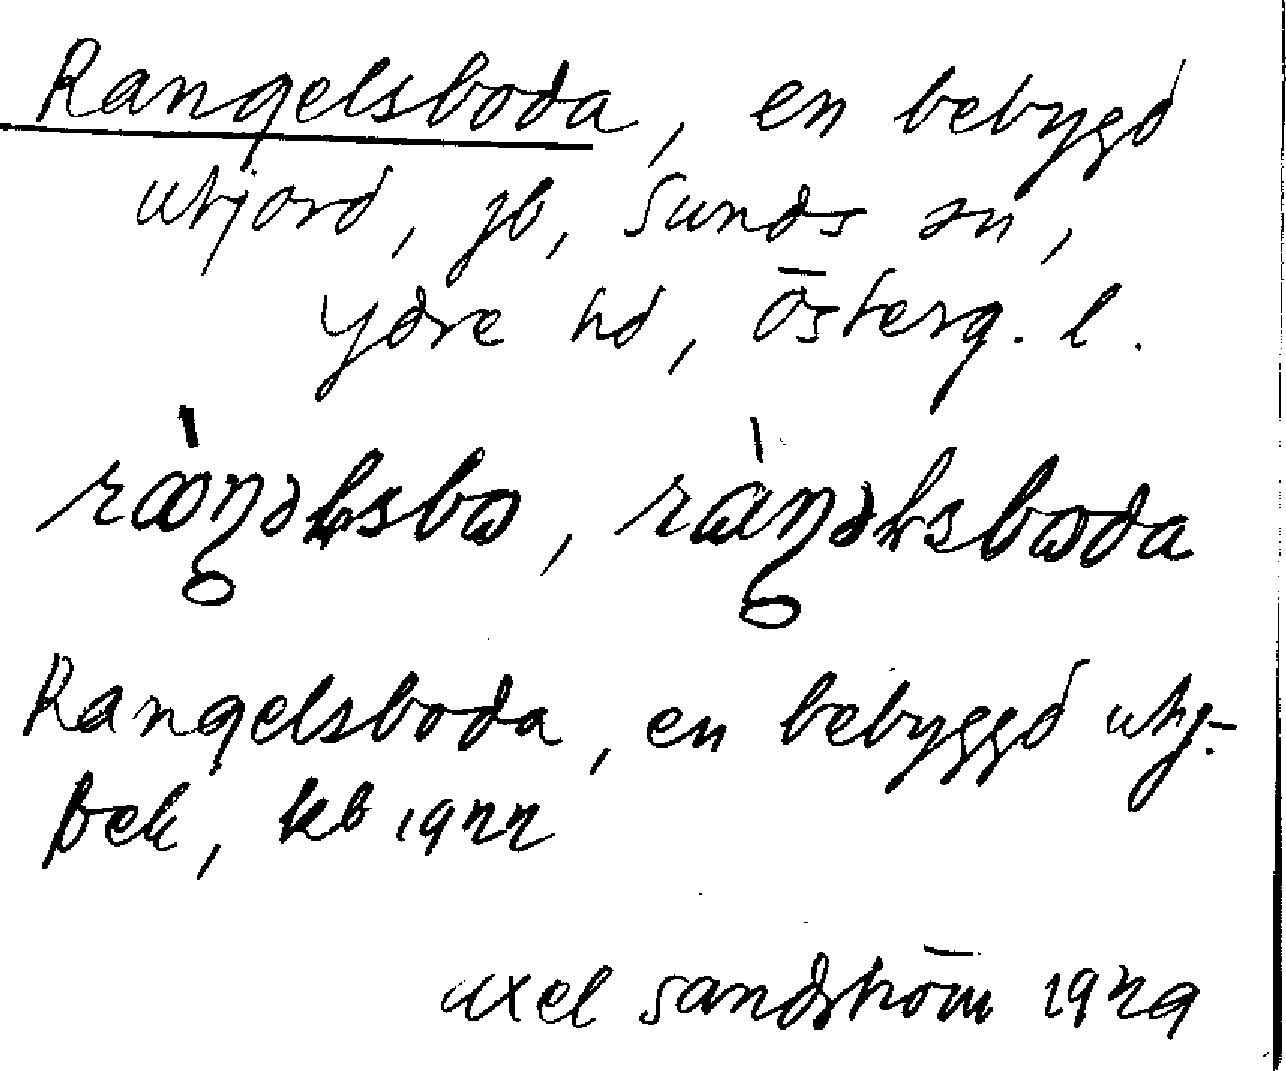 Rangelsboda, en bebygd
utjord, jb, Sunds sn,
Ydre hd, Österg. l.
Rangelsboda, en bebyggd utj.
bek, kb 1922
Axel Sandström 1929